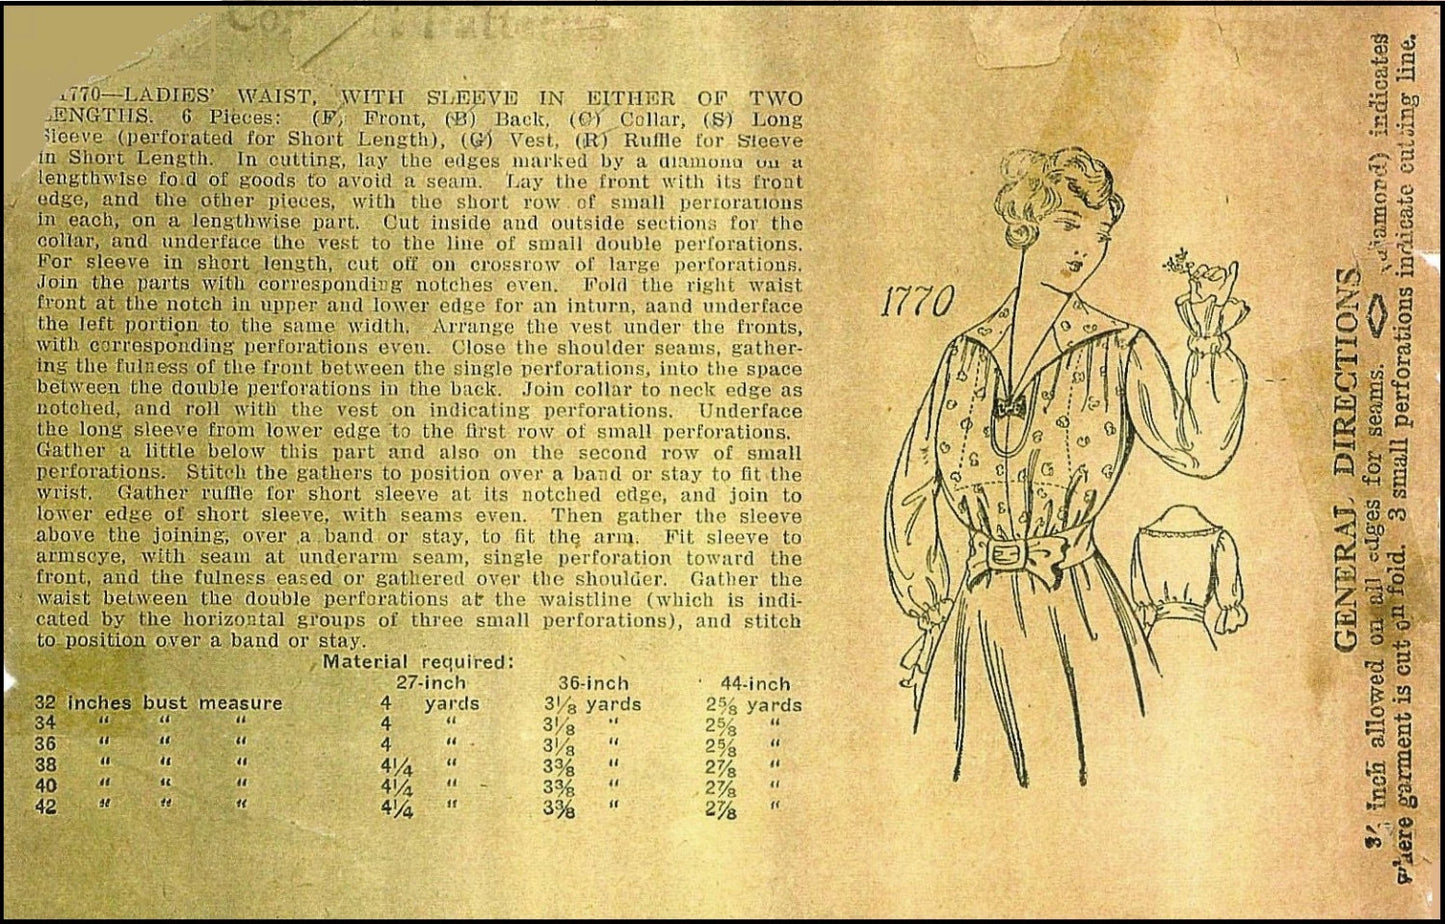 1770—LADIES' WAIST, WITH SLEEVE IN EITHER OF TWO
LENGTHS. 6 Pieces: (F) Front, (B) Back, (C) Collar, (S) Long
Sleeve (perforated for Short Length), (G) Vest, (R) Ruffle for Sleeve
in Short Length. In cutting, lay the edges marked by a diamond on a
lengthwise fold of goods to avoid a seam. Lay the front with its front
edge, and the other pieces, with the short row of small perforations
in each, on a lengthwise part. Cut inside and outside sections for the
collar, and underface the vest to the line of small double perforations.
For sleeve in short length, cut off on crossrow of large perforations.
Join the parts with corresponding notches even. Fold the right waist
front at the notch in upper and lower edge for an inturn, aand underface
the left portion to the same width. Arrange the vest under the fronts,
with corresponding perforations even. Close the shoulder seams, gather-
ing the fulness of the front between the single perforations, into the space
between the double perforations in the back. Join collar to neck edge as
notched, and roll with the vest on indicating perforations. Underface
the long sleeve from lower edge to the first row of small perforations.
Gather a little below this part and also on the second row of small
perforations. Stitch the gathers to position over a band or stay to fit the
wrist. Gather ruffle for short sleeve at its notched edge, and join to
lower edge of short sleeve, with seams even. Then gather the sleeve
above the joining, over a band or stay, to fit the arm. Fit sleeve to
armscye, with seam at underarm seam, single perforation toward the
front, and the fulness eased or gathered over the shoulder. Gather the
waist between the double perforations at the waistline (which is indi-
cated by the horizontal groups of three small perforations), and stitch
to position over a band or stay.
Material required:
27-inch 36-inch 44-inch
32 inches bust measure 4 yards 3⅛ yards 2⅝ yards
34 " " " 4 " 3⅛ " 2⅝ "
36 " " " 4 " 3⅛ " 2⅝ "
38 " " " 4¼ " 3⅜ " 2⅞ "
40 " " " 4¼ " 3⅜ " 2⅞ "
42 " " " 4¼ " 3⅜ " 2⅞ "
1770
GENERAL DIRECTIONS
inch allowed on all edges for seams. (diamond) indicates
where garment is cut on fold. 3 small perforations indicate cutting line.